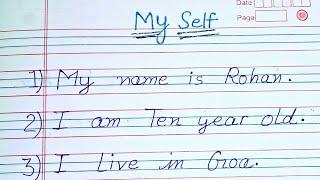 Date
Page
My Self
1) My name is Rohan.
2) I am Ten year old.
3) I Live in Goa.